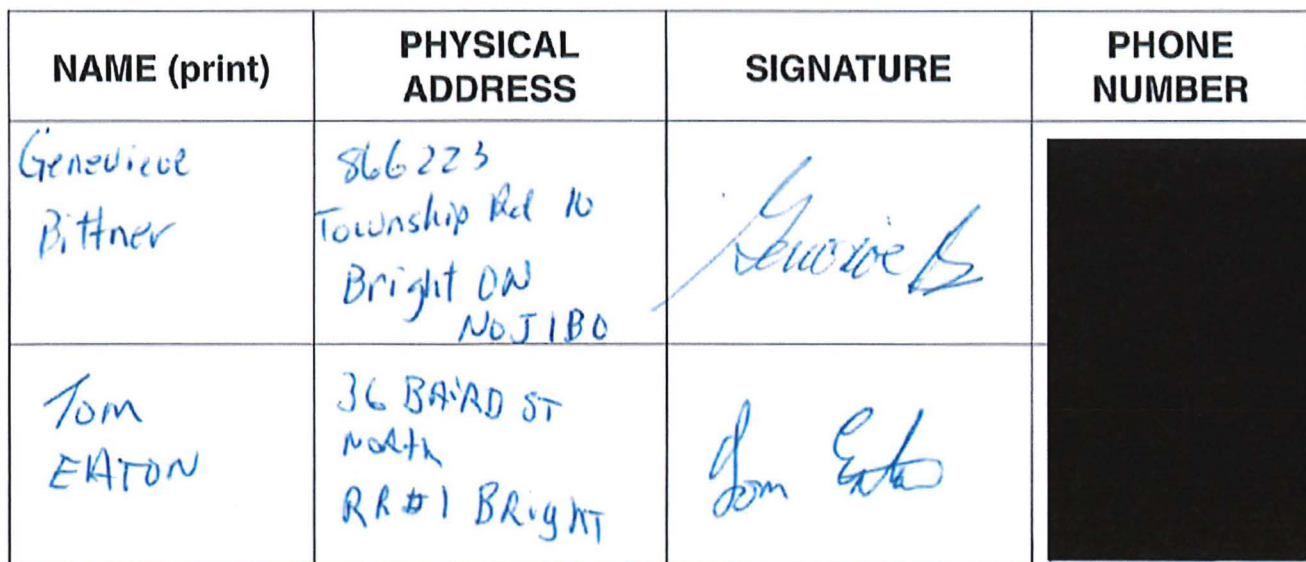 NAME (print)
PHYSICAL
ADDRESS
SIGNATURE
PHONE
NUMBER
Genevieve
Bittner
866223
Township Rd 10
Bright ON
N0J 1B0
Genevieve B
Tom
EATON
36 BAIRD ST
North
RR#1 BRigHT
Tom Eaton